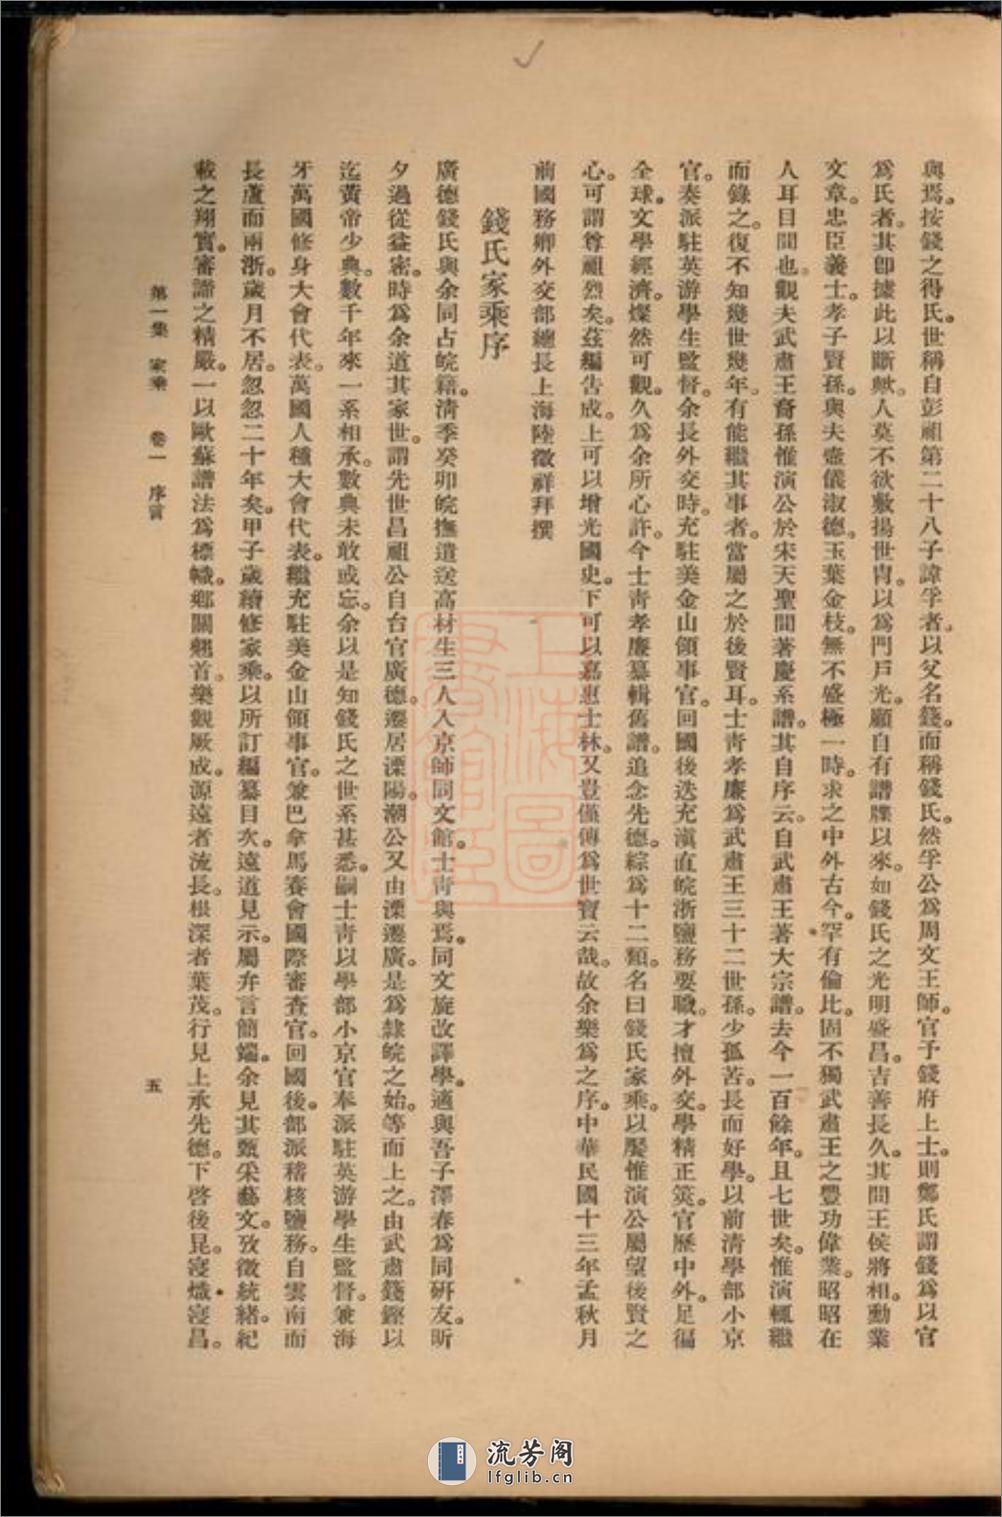 與焉。按錢之得氏。世稱自彭祖第二十八子諱孚者。以父名錢。而稱錢氏。然孚公爲周文王師。官予錢府上士。則鄭氏謂錢爲以官
爲氏者。其卽據此以斷歟。人莫不欲敷揚世胄。以爲門戶光。顧自有譜牒以來。如錢氏之光明盛昌。吉善長久。其間王侯將相。勳業
文章。忠臣義士。孝子賢孫。與夫壼儀淑德。玉葉金枝。無不盛極一時。求之中外古今。罕有倫比。固不獨武肅王之豐功偉業。昭昭在
人耳目間也。觀夫武肅王裔孫惟演公於宋天聖間著慶系譜。其自序云。自武肅王著大宗譜。去今一百餘年。且七世矣。惟演輒繼
而錄之。復不知幾世幾年。有能繼其事者。當屬之於後賢耳。士靑孝廉爲武肅王三十二世孫。少孤苦。長而好學。以前淸學部小京
官。奏派駐英游學生監督。余長外交時。充駐美金山領事官。回國後迭充滇直皖浙鹽務要職。才擅外交。學精正筴。官歷中外。足徧
全球。文學經濟。燦然可觀。久爲余所心許。今士靑孝廉纂輯舊譜。追念先德。綜爲十二類。名曰錢氏家乘。以饜惟演公屬望後賢之
心。可謂尊祖烈矣。茲編告成。上可以增光國史。下可以嘉惠士林。又豈僅傳爲世寶云哉。故余樂爲之序。中華民國十三年孟秋月
前國務卿外交部總長上海陸徵祥拜撰
錢氏家乘序
廣德錢氏與余同占皖籍。淸季癸卯皖撫遣送高材生三人入京師同文館。士靑與焉。同文旋改譯學。適與吾子澤春爲同硏友。昕
夕過從益密。時爲余道其家世。謂先世昌祖公自台官廣德。遷居溧陽。潮公又由溧遷廣。是爲隸皖之始。等而上之。由武肅籛鏗以
迄黃帝少典。數千年來一系相承。數典未敢或忘。余以是知錢氏之世系甚悉。嗣士靑以學部小京官奉派駐英游學生監督。兼海
牙萬國修身大會代表。萬國人種大會代表。繼充駐美金山領事官。兼巴拿馬賽會國際審查官。回國後。部派稽核鹽務。自雲南而
長蘆而兩浙。歲月不居。忽忽二十年矣。甲子歲續修家乘。以所訂編纂目次。遠道見示。屬弁言簡端。余見其甄采藝文。攷徵統緒。紀
載之翔實。審諦之精嚴。一以歐蘇譜法爲標幟。鄕關翹首。樂觀厥成。源遠者流長。根深者葉茂。行見上承先德。下啓後昆。寖熾寖昌。
第一集 家乘 卷一 序言
五
上海圖書館藏
流芳阁
lfglib.cn